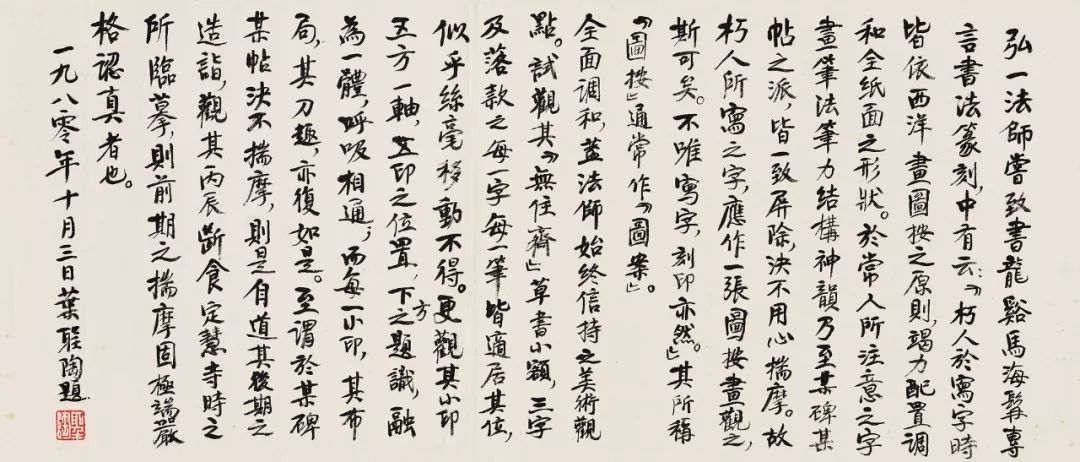 弘一法師嘗致書龍谿馬海髯專
言書法篆刻,中有云:「朽人於寫字時
皆依西洋畫圖按之原則,竭力配置調
和全紙面之形狀。於常人所注意之字
畫筆法筆力結構神韻乃至某碑某
帖之派,皆一致屏除,決不用心揣摩。故
朽人所寫之字,應作一張圖按畫觀之,
斯可矣。不唯寫字,刻印亦然。」其所稱
「圖按」通常作「圖案」。
全面調和,蓋法師始終信持之美術觀
點。試觀其「無住齋」草書小額,三字
及落款之每一字每一筆皆適居其位,
似乎絲毫移動不得。更觀其小印
五方一軸,五印之位置,下方之題識,融
為一體,呼吸相通;而每一小印,其布
局,其刀趣,亦復如是。至謂於某碑
某帖決不揣摩,則是自道其後期之
造詣,觀其丙辰斷食定慧寺時之
所臨摹,則前期之揣摩固極端嚴
格認真者也。
一九八零年十月三日葉聖陶題
聖陶